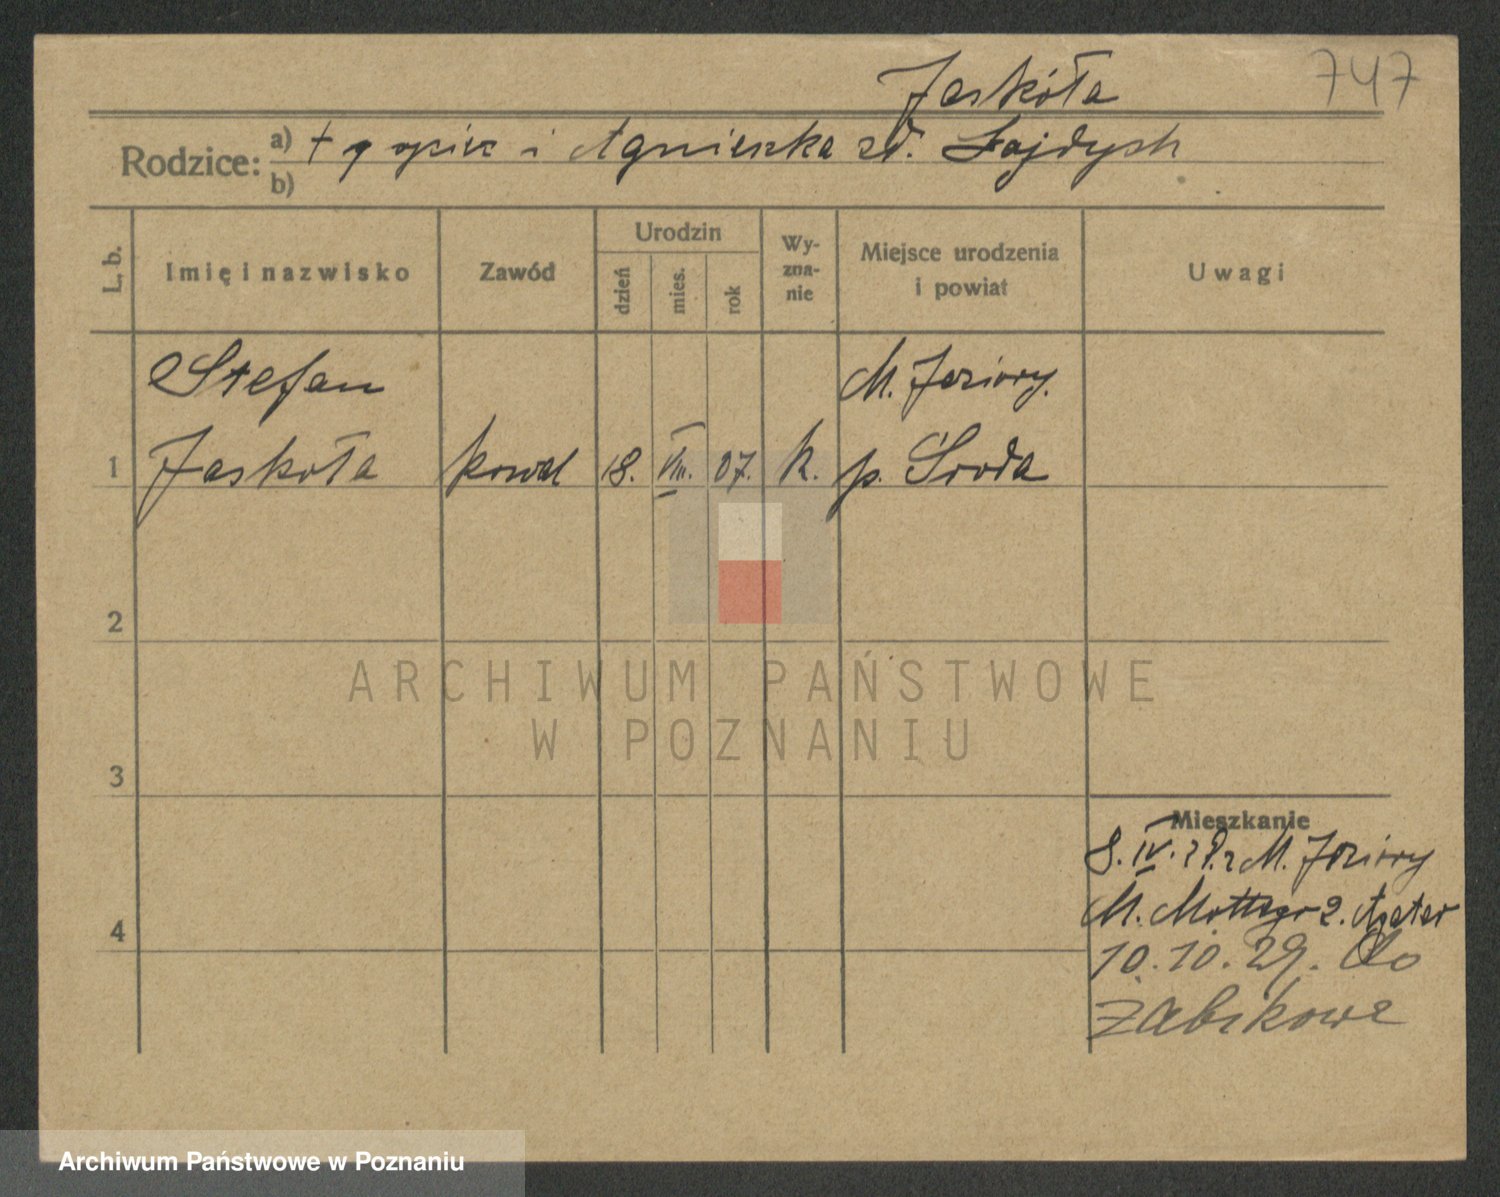 Jaskóła
747
Rodzice: a) i Agnieszka zd. Łajdych
b)
L. b.
Imię i nazwisko
Zawód
Urodzin
dzień
mies.
rok
Wy-
zna-
nie
Miejsce urodzenia
i powiat
Uwagi
Stefan
M. Jeziory.
1 Jaskoła kowal 18. VIII. 07. k. p. Środa
2
ARCHIWUM PAŃSTWOWE
W POZNANIU
3
Mieszkanie
8. IV. 29. z M. Jeziory
4
M. Mottego 2.
10.10.29. do
Żabikowa
Archiwum Państwowe w Poznaniu